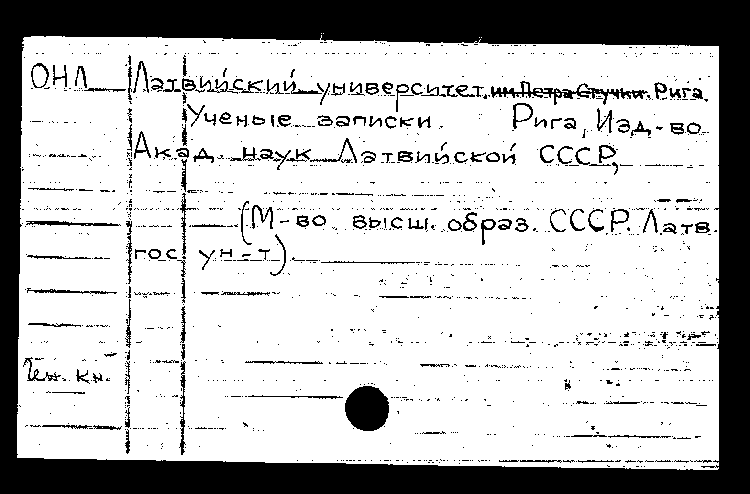 ОНЛ Латвийский университет им. Петра Стучки. Рига.
Ученые записки. Рига, Изд-во
Акад. наук Латвийской СССР,
(М-во высш. образ. СССР. Латв.
гос ун-т).
Ген. кн.